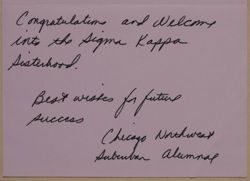 Congratulations and Welcome
into the Sigma Kappa
Sisterhood.
Best wishes for future
success
Chicago Northwest
Suburban Alumnae